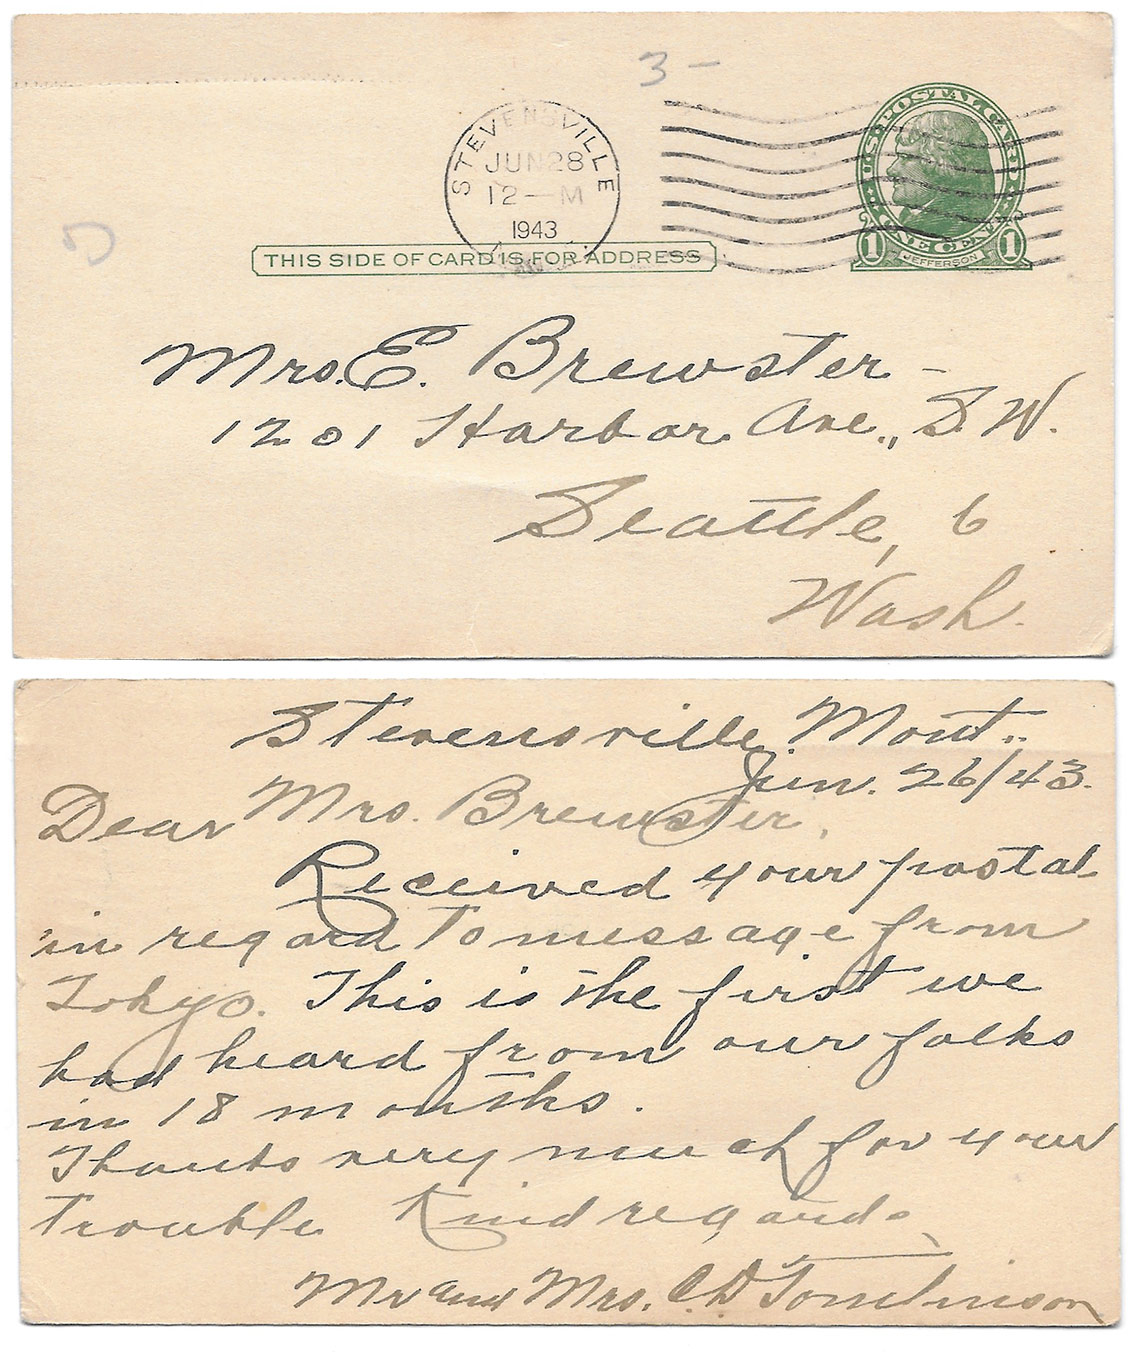 3 –
STEVENSVILLE
JUN 28
12 – M
1943
U.S. POSTAL CARD
ONE CENT
1 JEFFERSON 1
THIS SIDE OF CARD IS FOR ADDRESS
Mrs. E. Brewster –
1201 Harbor Ave., S.W.
Seattle, 6
Wash.
Stevensville, Mont.,
Jun. 26/43.
Dear Mrs. Brewster,
Received your postal
in regard to message from
Tokyo. This is the first we
had heard from our folks
in 18 months.
Thanks very much for your
trouble Kind regards,
Mr and Mrs. C D Tomlinson